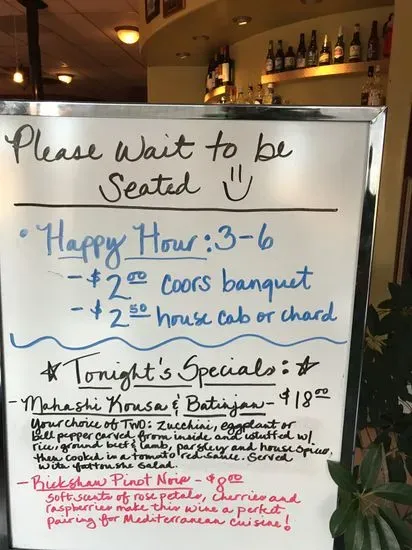 Please Wait to be
Seated
• Happy Hour: 3-6
- $2.00 Coors banquet
- $2.50 house cab or chard
☆ Tonight's Specials: ☆
- Mahashi Kousa & Batinjan - $18.00
Your choice of TWO: zucchini, eggplant or
bell pepper carved from inside and stuffed w/
rice, ground beef & lamb, parsley and house spices,
then cooked in a tomato red sauce. Served
with fattoushe Salad.
- Rickshaw Pinot Noir - $8.00
soft scents of rose petals, cherries and
raspberries make this wine a perfect
pairing for Mediterranean cuisine!